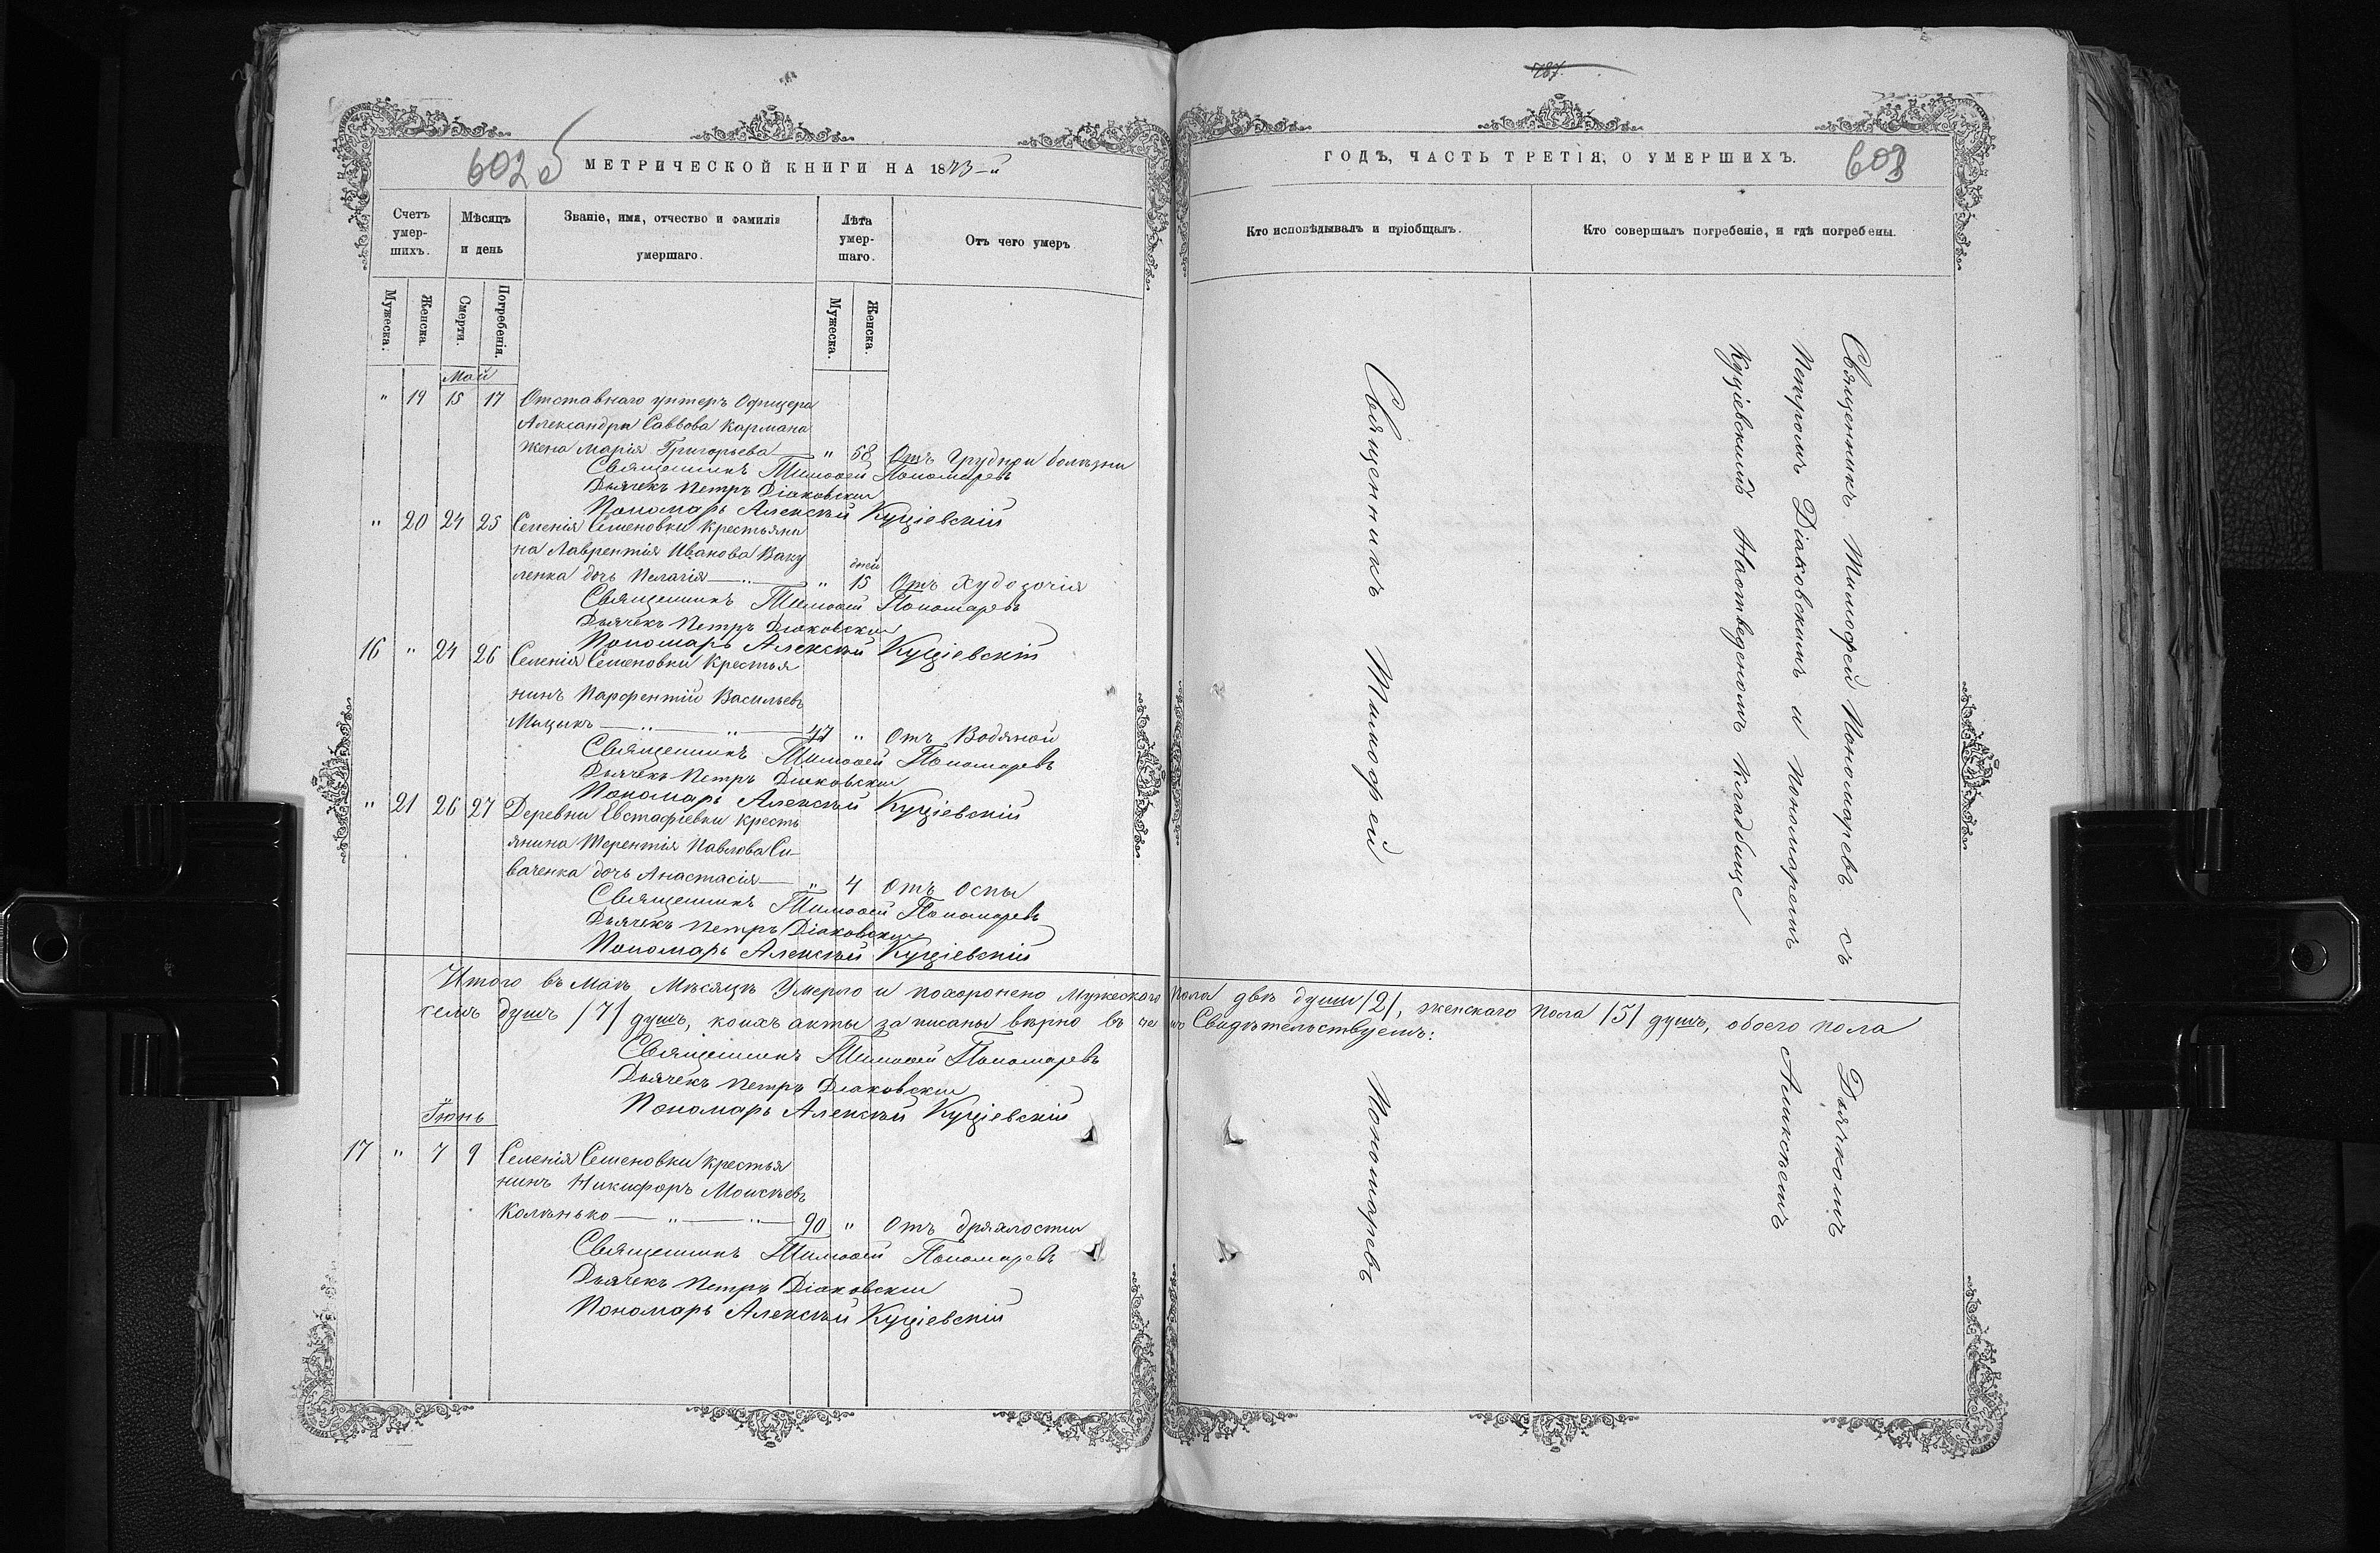 602 б
МЕТРИЧЕСКОЙ КНИГИ НА 1873-й
Счетъ умер-шихъ.
Мѣсяцъ и день
Званіе, имя, отчество и фамилія умершаго.
Лѣта умер-шаго.
Отъ чего умеръ
Мужеска.
Женска.
Смерти.
Погребенія.
Мужеска.
Женска.
Май
" 19 15 17 Отставнаго унтеръ Офицера
Александра Саввова Кармана
жена Марія Григорьева " 58 Отъ Грудной болѣзни
Священникъ Тимоѳей Пономаревъ
Дьячекъ Петръ Діаковскій
Пономарь Алексѣй Куціевскій
" 20 24 25 Селенія Семеновки крестьяни
на Лаврентія Иванова Ваку
дней
ленка дочь Пелагія " 15 Отъ Худосочія
Священникъ Тимоѳей Пономаревъ
Дьячекъ Петръ Діаковскій
Пономарь Алексѣй Куціевскій
16 " 24 26 Селенія Семеновки Крестья
нинъ Парфентій Васильевъ
Мацыкъ 47 " Отъ Водяной
Священникъ Тимоѳей Пономаревъ
Дьячекъ Петръ Діаковскій
Пономарь Алексѣй Куціевскій
" 21 26 27 Деревни Евстафіевки кресть
янина Терентія Павлова Си-
ваченка дочь Анастасія " 4 Отъ оспы
Священникъ Тимоѳей Пономаревъ
Дьячекъ Петръ Діаковскій
Пономарь Алексѣй Куціевскій
Итого въ Маѣ Мѣсяцѣ Умерло и похоронено Мужескаго пола двѣ души /2/, женскаго пола /5/ душъ, обоего пола
семь душъ /7/ душъ, коихъ акты записаны вѣрно въ чемъ Свидѣтельствуемъ:
Священникъ Тимоѳей Пономаревъ
Дьячекъ Петръ Діаковскій
Пономарь Алексѣй Куціевскій
Іюнь
17 " 7 9 Селенія Семеновки крестья
нинъ Никифоръ Моисѣевъ
Колѣнько 90 " Отъ дряхлости
Священникъ Тимоѳей Пономаревъ
Дьячекъ Петръ Діаковскій
Пономарь Алексѣй Куціевскій
787.
ГОДЪ, ЧАСТЬ ТРЕТІЯ, О УМЕРШИХЪ.
603
Кто исповѣдывалъ и пріобщалъ.
Кто совершалъ погребеніе, и гдѣ погребены.
Священникъ Тимофей Пономаревъ
Священникъ Тимофей Пономаревъ съ Дьячкомъ
Петромъ Діаковскимъ и Пономаремъ Алексѣемъ
Куціевскимъ На отведеномъ Кладбище